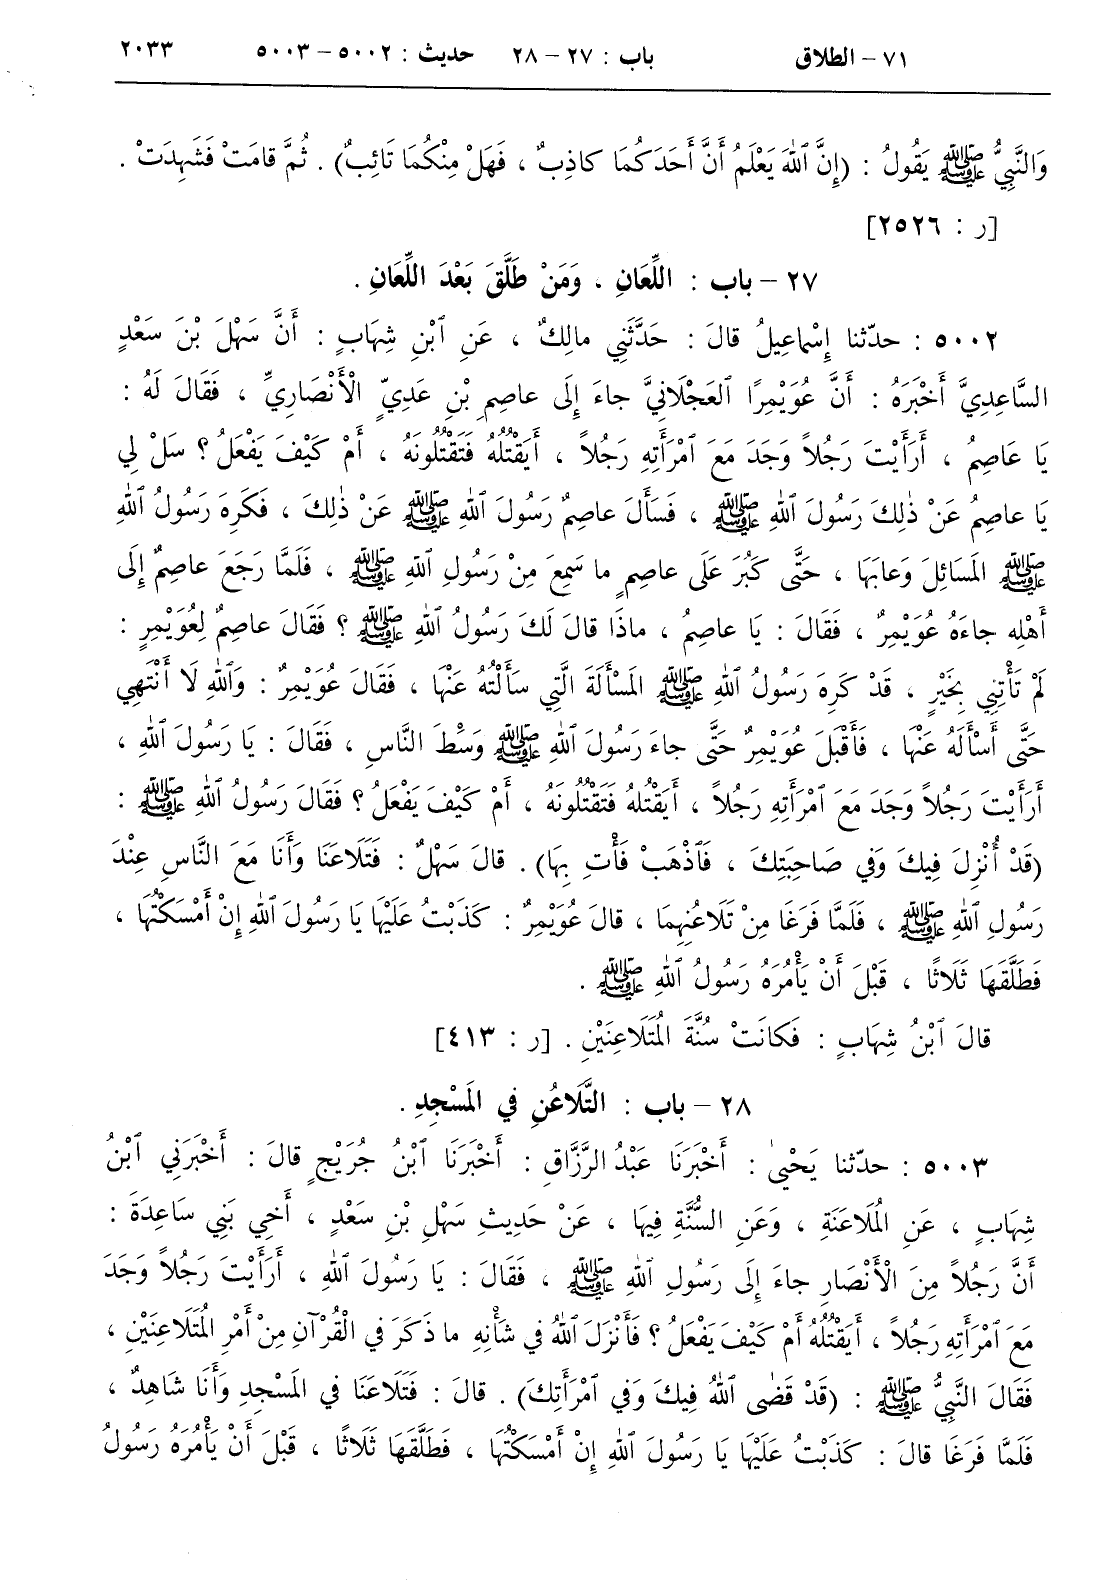 ٧١ – الطلاق باب : ٢٧ – ٢٨ حديث : ٥٠٠٢ – ٥٠٠٣ ٢٠٣٣
وَالنَّبِيُّ ﷺ يَقُولُ : (إِنَّ ٱللهَ يَعْلَمُ أَنَّ أَحَدَكُمَا كاذِبٌ ، فَهَلْ مِنْكُمَا تَائِبٌ) . ثُمَّ قامَتْ فَشَهِدَتْ .
[ر : ٢٥٢٦]
٢٧ – باب : اللِّعَانِ ، وَمَنْ طَلَّقَ بَعْدَ اللِّعَانِ .
٥٠٠٢ : حدّثنا إِسْمَاعِيلُ قالَ : حَدَّثَنِي مالِكٌ ، عَنِ ٱبْنِ شِهَابٍ : أَنَّ سَهْلَ بْنَ سَعْدٍ
السَّاعِدِيَّ أَخْبَرَهُ : أَنَّ عُوَيْمِرًا العَجْلَانِيَّ جاءَ إِلَى عاصِمِ بْنِ عَدِيّ الْأَنْصَارِيِّ ، فَقَالَ لَهُ :
يَا عَاصِمُ ، أَرَأَيْتَ رَجُلاً وَجَدَ مَعَ ٱمْرَأَتِهِ رَجُلاً ، أَيَقْتُلُهُ فَتَقْتُلُونَهُ ، أَمْ كَيْفَ يَفْعَلُ ؟ سَلْ لِي
يَا عاصِمُ عَنْ ذٰلِكَ رَسُولَ ٱللهِ ﷺ ، فَسَأَلَ عاصِمٌ رَسُولَ ٱللهِ ﷺ عَنْ ذٰلِكَ ، فَكَرِهَ رَسُولُ ٱللهِ
ﷺ المَسَائِلَ وَعابَهَا ، حَتَّى كَبُرَ عَلَى عاصِمٍ ما سَمِعَ مِنْ رَسُولِ ٱللهِ ﷺ ، فَلَمَّا رَجَعَ عاصِمٌ إِلَى
أَهْلِهِ جاءَهُ عُوَيْمِرٌ ، فَقَالَ : يَا عاصِمُ ، ماذَا قالَ لَكَ رَسُولُ ٱللهِ ﷺ ؟ فَقَالَ عاصِمٌ لِعُوَيْمِرٍ :
لَمْ تَأْتِنِي بِخَيْرٍ ، قَدْ كَرِهَ رَسُولُ ٱللهِ ﷺ المَسْأَلَةَ الَّتِي سَأَلْتُهُ عَنْهَا ، فَقَالَ عُوَيْمِرٌ : وَٱللهِ لَا أَنْتَهِي
حَتَّى أَسْأَلَهُ عَنْهَا ، فَأَقْبَلَ عُوَيْمِرٌ حَتَّى جاءَ رَسُولَ ٱللهِ ﷺ وَسْطَ النَّاسِ ، فَقَالَ : يَا رَسُولَ ٱللهِ ،
أَرَأَيْتَ رَجُلاً وَجَدَ مَعَ ٱمْرَأَتِهِ رَجُلاً ، أَيَقْتُلُهُ فَتَقْتُلُونَهُ ، أَمْ كَيْفَ يَفْعَلُ ؟ فَقَالَ رَسُولُ ٱللهِ ﷺ :
(قَدْ أُنْزِلَ فِيكَ وَفي صَاحِبَتِكَ ، فَٱذْهَبْ فَأْتِ بِهَا) . قالَ سَهْلٌ : فَتَلَاعَنَا وَأَنَا مَعَ النَّاسِ عِنْدَ
رَسُولِ ٱللهِ ﷺ ، فَلَمَّا فَرَغَا مِنْ تَلَاعُنِهِمَا ، قالَ عُوَيْمِرٌ : كَذَبْتُ عَلَيْهَا يَا رَسُولَ ٱللهِ إِنْ أَمْسَكْتُهَا ،
فَطَلَّقَهَا ثَلَاثًا ، قَبْلَ أَنْ يَأْمُرَهُ رَسُولُ ٱللهِ ﷺ .
قالَ ٱبْنُ شِهَابٍ : فَكَانَتْ سُنَّةَ المُتَلَاعِنَيْنِ . [ر : ٤١٣]
٢٨ – باب : التَّلَاعُنِ في المَسْجِدِ .
٥٠٠٣ : حدّثنا يَحْيىٰ : أَخْبَرَنَا عَبْدُ الرَّزَّاقِ : أَخْبَرَنَا ٱبْنُ جُرَيْجٍ قالَ : أَخْبَرَنِي ٱبْنُ
شِهَابٍ ، عَنِ المُلَاعَنَةِ ، وَعَنِ السُّنَّةِ فِيهَا ، عَنْ حَدِيثِ سَهْلِ بْنِ سَعْدٍ ، أَخِي بَنِي سَاعِدَةَ :
أَنَّ رَجُلاً مِنَ الْأَنْصَارِ جاءَ إِلَى رَسُولِ ٱللهِ ﷺ ، فَقَالَ : يَا رَسُولَ ٱللهِ ، أَرَأَيْتَ رَجُلاً وَجَدَ
مَعَ ٱمْرَأَتِهِ رَجُلاً ، أَيَقْتُلُهُ أَمْ كَيْفَ يَفْعَلُ ؟ فَأَنْزَلَ ٱللهُ في شَأْنِهِ ما ذَكَرَ في الْقُرْآنِ مِنْ أَمْرِ المُتَلَاعِنَيْنِ ،
فَقَالَ النَّبِيُّ ﷺ : (قَدْ قَضٰى ٱللهُ فِيكَ وَفي ٱمْرَأَتِكَ) . قالَ : فَتَلَاعَنَا في المَسْجِدِ وَأَنَا شَاهِدٌ ،
فَلَمَّا فَرَغَا قالَ : كَذَبْتُ عَلَيْهَا يَا رَسُولَ ٱللهِ إِنْ أَمْسَكْتُهَا ، فَطَلَّقَهَا ثَلَاثًا ، قَبْلَ أَنْ يَأْمُرَهُ رَسُولُ